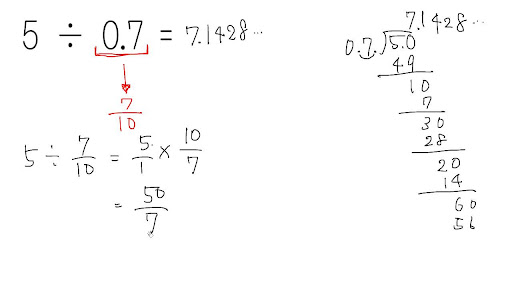 5 ÷ 0.7 = 7.1428...
7/10
5 ÷ 7/10 = 5/1 × 10/7
= 50/7
7.1428...
0.7.)5.0
49
10
7
30
28
20
14
60
56